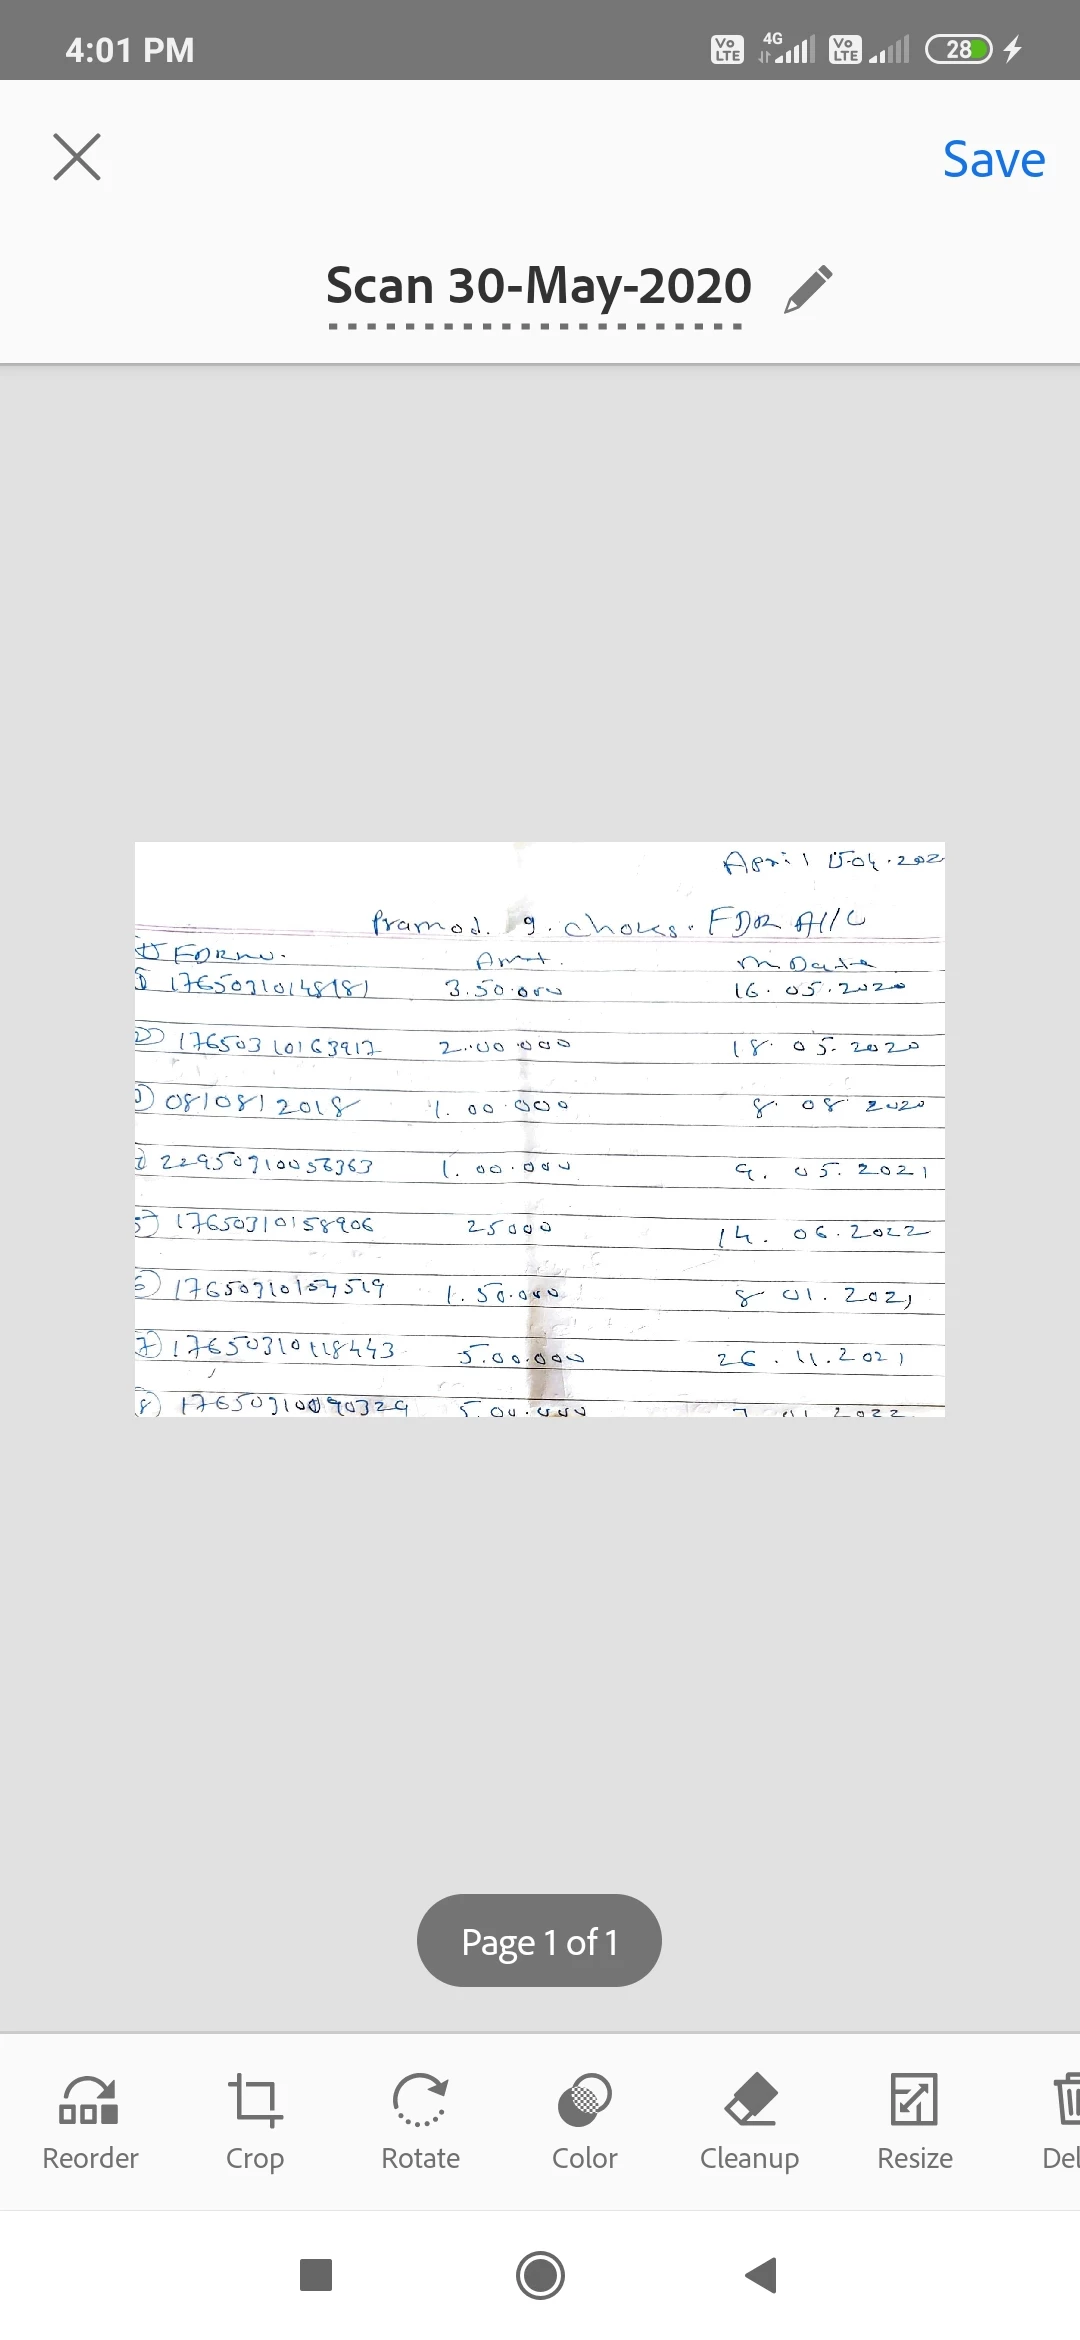 4:01 PM
Vo LTE 4G Vo LTE 28
Save
Scan 30-May-2020
April 15.04.202
Pramod. g. FDR A/C
FDR no. Amt. m Date
3.50.000 16.05.2020
2) 17650310163917 2.00.000 18.05.2020
08/08/2018 1.00.000 8.08 2020
22950310056363 1.00.000 9.05.2021
5) 17650310158906 25000 14.06.2022
6) 17650310154519 1.50.000 8 01.2021
7) 17650310118443 5.00.000 26.11.2021
8) 17650310090329 5.00.000 2022
Page 1 of 1
Reorder Crop Rotate Color Cleanup Resize Del